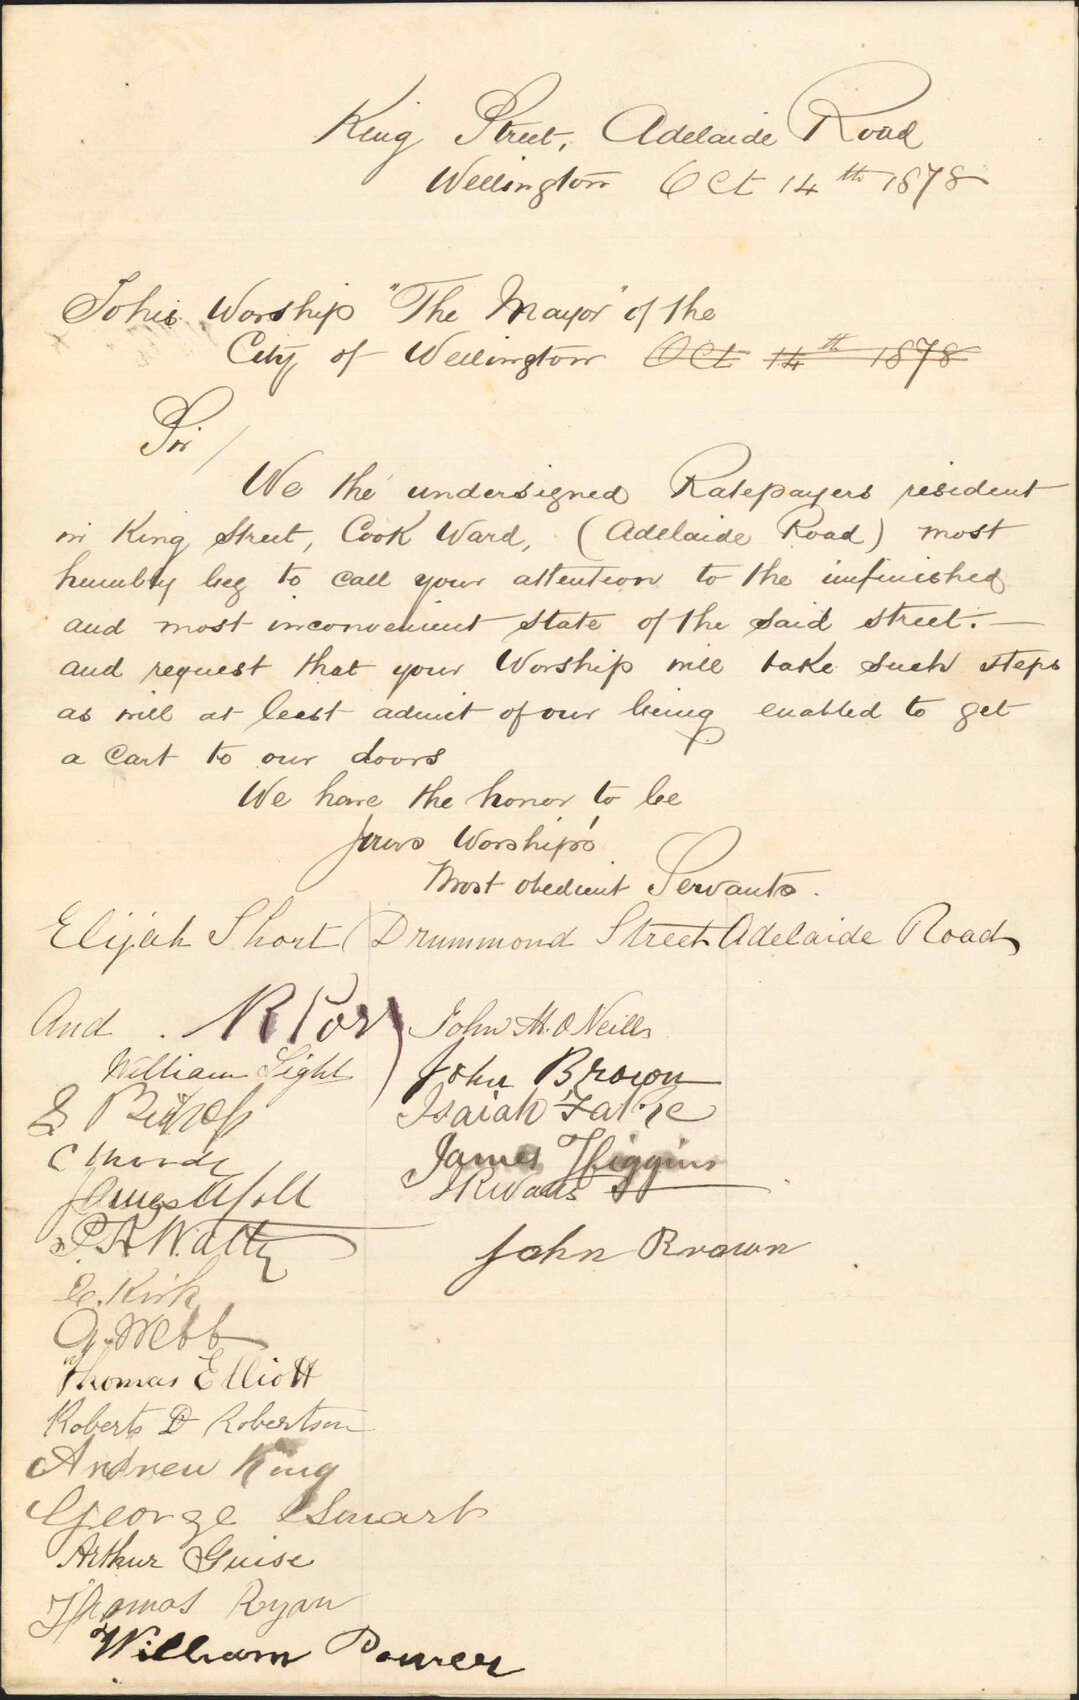 King Street, Adelaide Road
Wellington Oct 14th 1878
To his Worship "The Mayor" of the
City of Wellington Oct 14th 1878
Sir /
We the undersigned Ratepayers resident
in King Street, Cook Ward, (Adelaide Road) most
humbly beg to call your attention to the unfinished
and most inconvenient state of the said street. —
and request that your Worship will take such steps
as will at least admit of our being enabled to get
a cart to our doors
We have the honor to be
Your Worship's
Most obedient Servants.
Elijah Short Drummond Street Adelaide Road
And
William Light
James
Watty
E. Kirk
G. Webb
Thomas Elliott
Roberts D Robertson
Andrew King
George Smart
Arthur Guise
Thomas Ryan
William Power
John M. O Neills
John Brown
Isaiah
James Higgins
John Brown